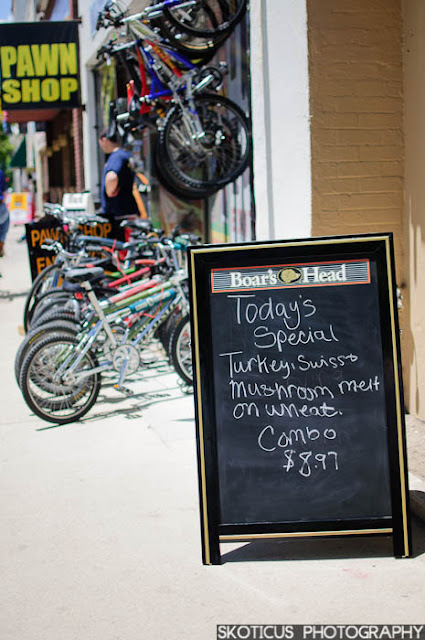 PAWN
SHOP
PAWN SHOP
Boar's Head
Today's
Special
Turkey, Swiss
Mushroom melt
on wheat.
Combo
$8.97
SKOTICUS PHOTOGRAPHY